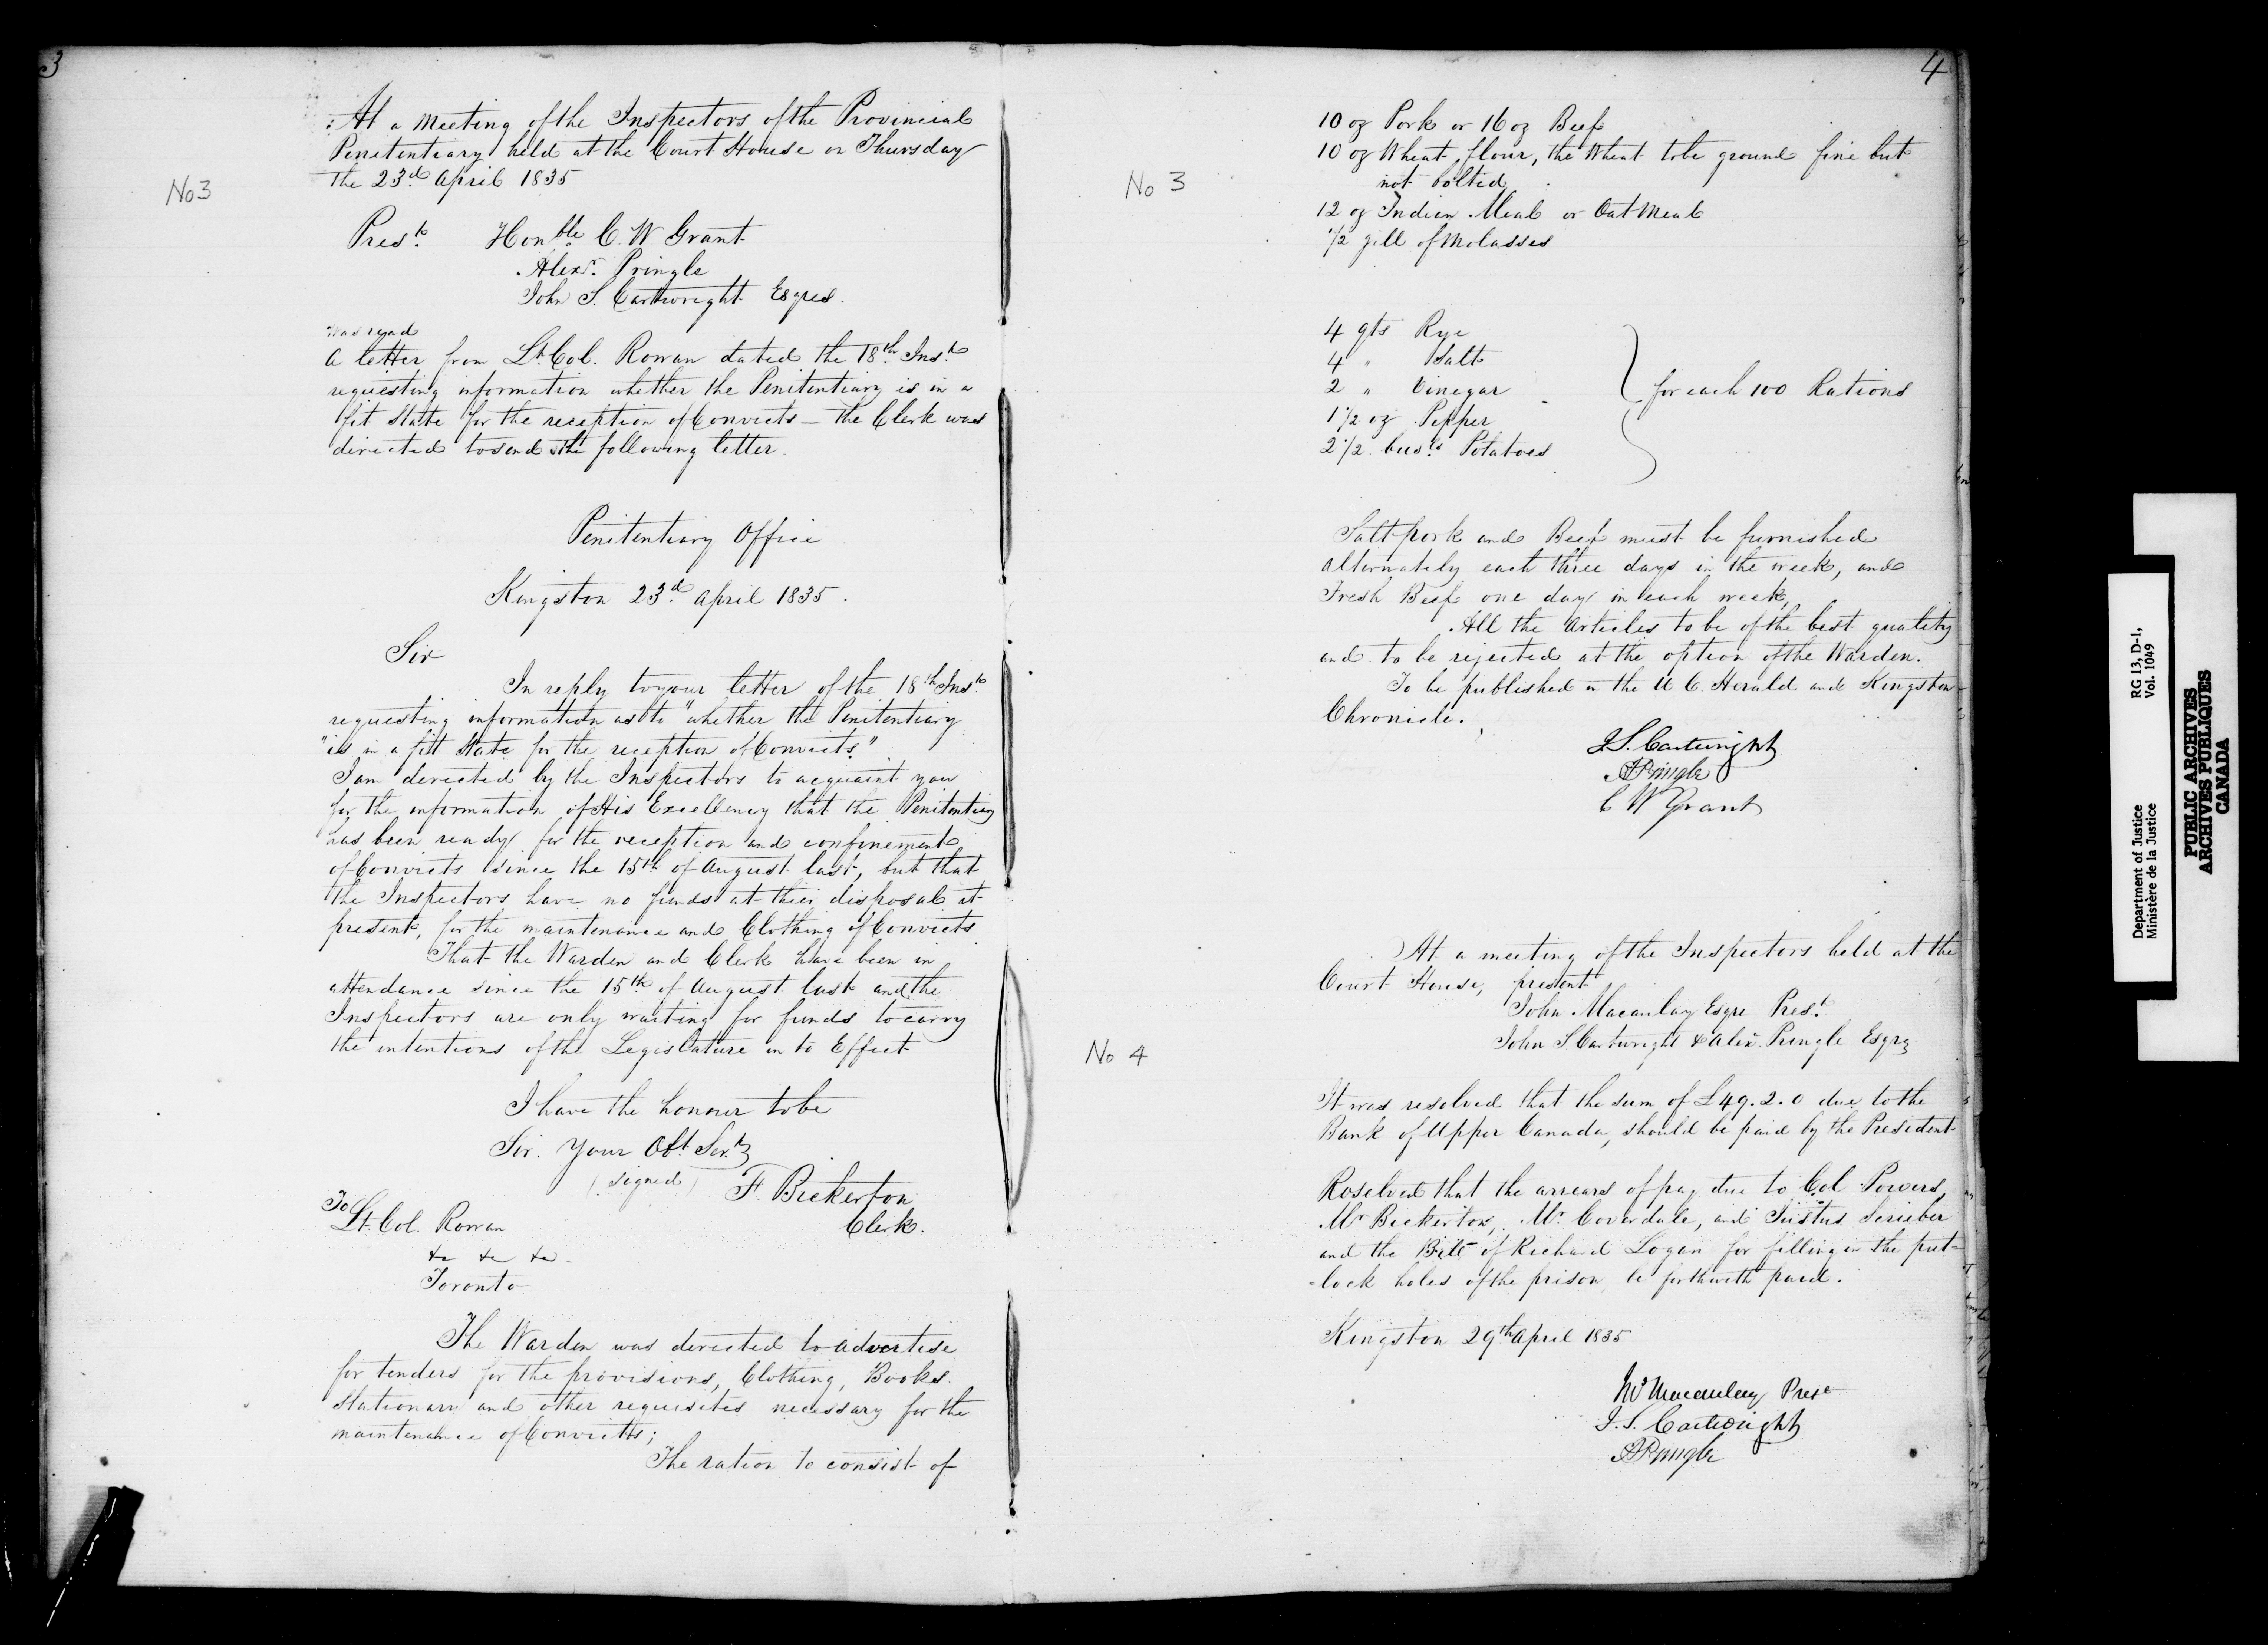 3
No 3
At a Meeting of the Inspectors of the Provincial
Penitentiary held at the Court House on Thursday
the 23d April 1835
Prest Honble C. W. Grant
Alexr. Pringle
John S. Cartwright Esqres.
was read
A letter from Lt. Col. Rowan dated the 18th Inst
requesting information whether the Penitentiary is in a
fit State for the reception of Convicts — the Clerk was
directed to send the following letter.
Penitentiary Office
Kingston 23d April 1835.
Sir
In reply to your letter of the 18th Inst
requesting information as to "whether the Penitentiary
"is in a fitt State for the reception of Convicts"
I am directed by the Inspectors to acquaint you
for the information of His Excellency that the Penitentiary
has been ready for the reception and confinement
of Convicts since the 15th of August last, but that
the Inspectors have no funds at their disposal at
present, for the maintenance and Clothing of Convicts
That the Warden and Clerk have been in
attendance since the 15th of August last and the
Inspectors are only waiting for funds to carry
the intentions of the Legislature in to Effect
I have the honner to be
Sir. Your Obt. Servt
(signed) F. Bickerton
Clerk.
To
Lt. Col. Rowan
&c &c &c
Toronto
The Warden was directed to advertise
for tenders for the provisions, Clothing, Books.
Stationary and other requisites necessary for the
maintenance of Convicts;
The ration to consist of
4
No 3
10 oz Pork or 16 oz Beef
10 oz Wheat flour, the Wheat to be ground fine but
not bolted
12 oz Indian Meal or Oat Meal
1/2 gill of Molasses
4 qts Rye
4 " Salt
2 " Vinegar
for each 100 Rations
1 1/2 oz Pepper
2 1/2 busls Potatoes
Salt pork and Beef must be furnished
alternately each three days in the week, and
Fresh Beef one day in each week,
All the Articles to be of the best quality
and to be rejected at the option of the Warden.
To be published in the U C. Herald and Kingston
Chronicle.
J. S. Cartwright
A Pringle
C W Grant
No 4
At a meeting of the Inspectors held at the
Court House, present
John Macaulay Esqre Prest
John S. Cartwright & Alexr. Pringle Esqrs
It was resolved that the sum of £49.2.0 due to the
Bank of Upper Canada, should be paid by the President
Roselved that the arrears of pay due to Col Powers,
Mr Bickerton, Mr. Coverdale, and Justus
and the Bill of Richard Logan for filling in the put=
=lock holes of the prison be forthwith paid.
Kingston 29th April 1835
Jno Macaulay Prest
J. S. Cartwright
A Pringle
Department of Justice
Ministère de la Justice
RG 13, D-1,
Vol. 1049
PUBLIC ARCHIVES
ARCHIVES PUBLIQUES
CANADA